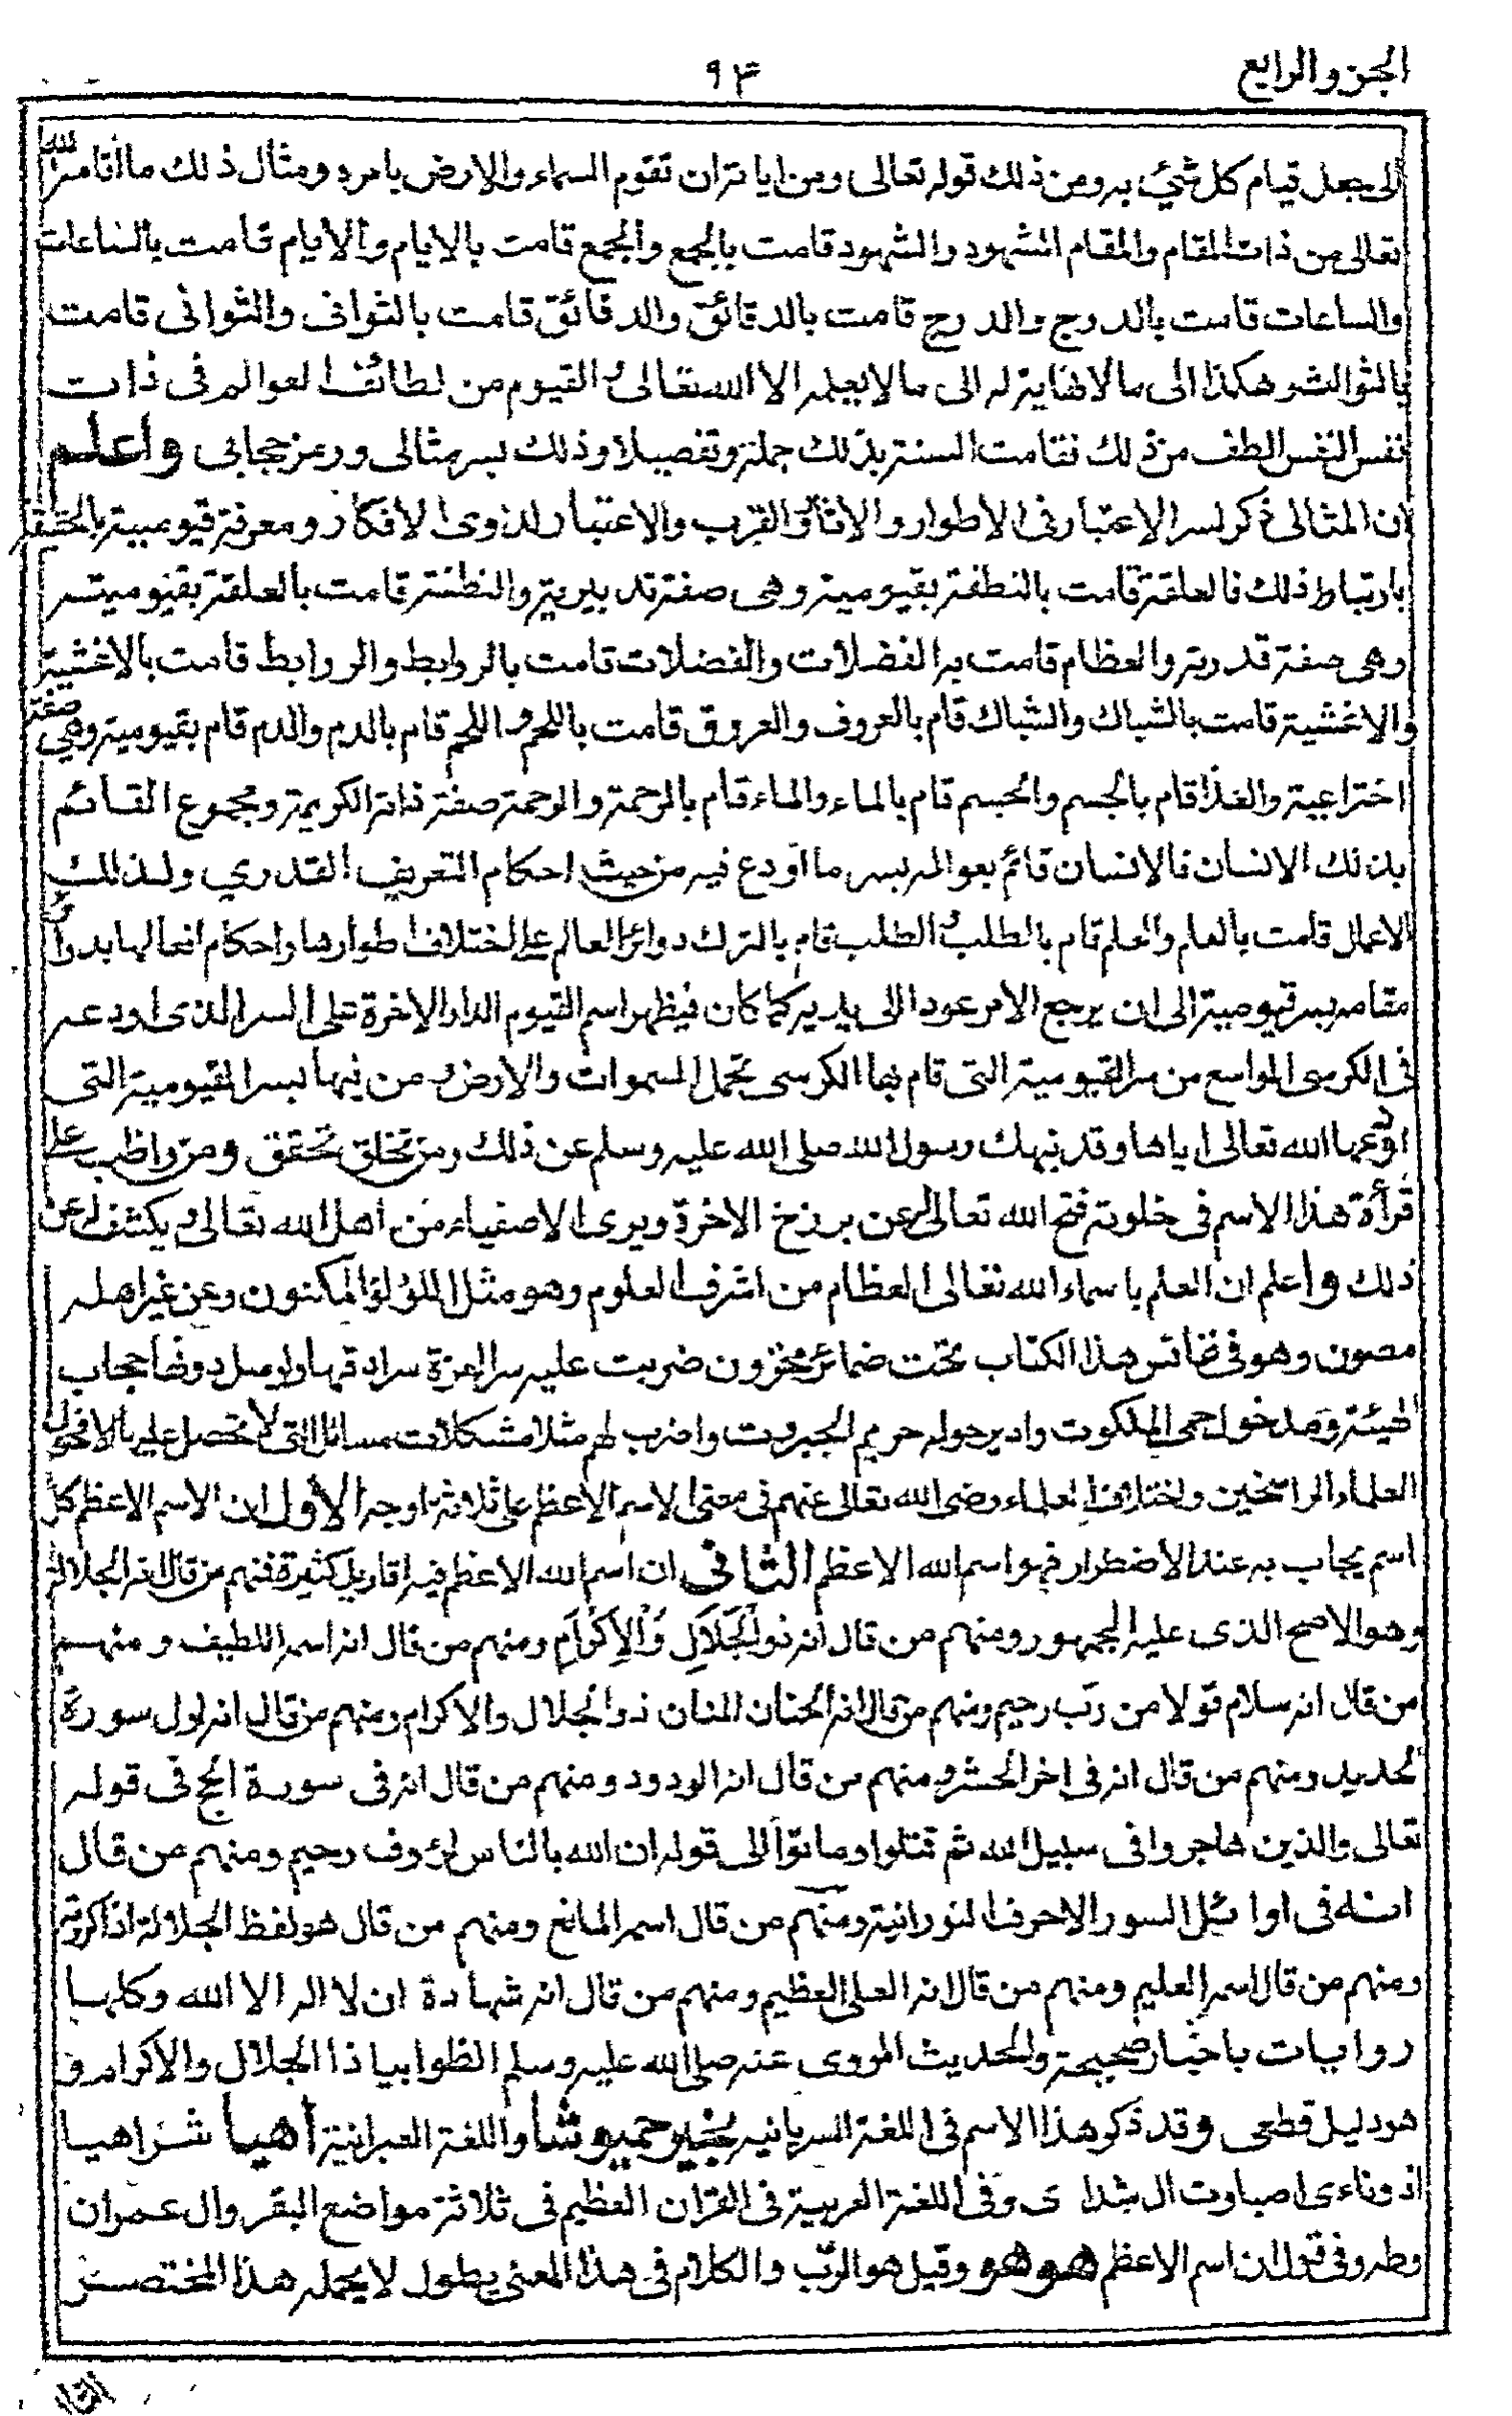 الجزء الرابع
٩٣
الى جعل قيام كل شيئ به ومن ذلك قوله تعالى ومن اياته ان تقوم السماء والارض بامره ومثال ذلك ما اقامه الله
تعالى من ذات المقام والمقام المشهود والشهود قامت بالجمع والجمع قامت بالايام والايام قامت بالساعات
والساعات قامت بالدرج والدرج قامت بالدقائق والدقائق قامت بالثوانى والثوانى قامت
بالثوالث وهكذا الى مالانهاية له الى مالا يعلمه الا الله تعالى القيوم من لطائف العوالم فى ذات
نفس النفس الطف من ذلك فقامت السنة بذلك جملة وتفصيلا وذلك بسر مثالى ورمز حجابى واعلم
ان المثالى ذكر لسر الاعتبار فى الاطوار والاثار والقرب والاعتبار لذوى الافكار ومعرفة قيوميته بالحقيقة
بارتباط ذلك فالعلقة قامت بالنطفة بقيوميته وهى صفة تدبيرية والنطفة قامت بالعلقة بقيوميته
وهى صفة قدرية والعظام قامت به الفضلات والفضلات قامت بالروابط والروابط قامت بالاغشية
والاغشية قامت بالشباك والشباك قام بالعروق والعروق قامت باللحم واللحم قام بالدم والدم قام بقيوميته وهي صفة
اختراعية والغذا قام بالجسم والجسم قام بالماء والماء قام بالرحمة والرحمة صفة ذاته الكريمة ومجموع القائم
بذلك الانسان فالانسان قائم بعوالمه بسر ما اودع فيه من حيث احكام التعريف القدري ولذلك
الاعمال قامت بالعلم والعلم قام بالطلب والطلب قام بالترك دوائر العالم على اختلاف اطوارها واحكام افعالها بدوا
مقامه بسر قيوميته الى ان يرجع الامر عودا الى بديه كما كان فيظهر اسم القيوم الدار الاخرة على السر الذى اودعه
فى الكرسى الواسع من سر القيومية التى قام بها الكرسى تحمل السموات والارض ومن فيها بسر القيومية التى
اودعها الله تعالى اياها وقد نبهك رسول الله صلى الله عليه وسلم عن ذلك ومن تخلق تحقق ومن واظب على
قرأة هذا الاسم فى خلوته فتح الله تعالى له عن برزخ الاخرة ويرى الاصفياء من اهل الله تعالى ويكشف له عن
ذلك واعلم ان العلم باسماء الله تعالى العظام من اشرف العلوم وهو مثل اللؤلؤ المكنون وعن غير اهله
مصون وهو فى نفائس هذا الكتاب تحت ضمائر مخزون ضربت عليه سر العزة سرادقها واوصل دونها حجاب
الهيئة ومدخوا حمى الملكوت وادير حوله حريم الجبروت واضرب لهم مثلا مشكلات مسائل التى لا تحصل عليه بالا فحول
العلماء الراسخين واختلاف العلماء رضى الله تعالى عنهم فى معنى الاسم الاعظم على ثلاثة اوجه الاول ان الاسم الاعظم كل
اسم يجاب به عند الاضطرار فهو اسم الله الاعظم الثانى ان اسم الله الاعظم فيه اقاويل كثيرة فمنهم من قال انه الجلالة
وهو الاصح الذى عليه الجمهور ومنهم من قال انه ذو الجلال والاكرام ومنهم من قال انه اسمه اللطيف ومنهم
من قال انه سلام قولا من رب رحيم ومنهم من قال انه الحنان المنان ذو الجلال والاكرام ومنهم من قال انه اول سورة
الحديد ومنهم من قال انه فى اخر الحشر ومنهم من قال انه الودود ومنهم من قال انه فى سورة الحج فى قوله
تعالى والذين هاجروا فى سبيل الله ثم قتلوا او ماتوا الى قوله ان الله بالناس لرؤف رحيم ومنهم من قال
انه فى اوائل السور الاحرف النورانية ومنهم من قال اسمه المانع ومنهم من قال هو لفظ الجلالة اذا كررته
ومنهم من قال اسمه العليم ومنهم من قال انه العلى العظيم ومنهم من قال انه شهادة ان لا اله الا الله وكلها
روايات باخبار صحيحة والحديث المروى عنه صلى الله عليه وسلم الظوا بيا ذا الجلال والاكرام و
هو دليل قطعى وقد ذكر هذا الاسم فى اللغة السريانيه حميوشا واللغة العبرانية اهيا شراهيا
اذوناءى اصباوت ال شداى وفى اللغة العربية فى القران العظيم فى ثلاثة مواضع البقره وال عمران
وطه وفى قول ان اسم الاعظم هو هو وقيل هو الرب والكلام فى هذا المعنى يطول لا يحمله هذا المختصر